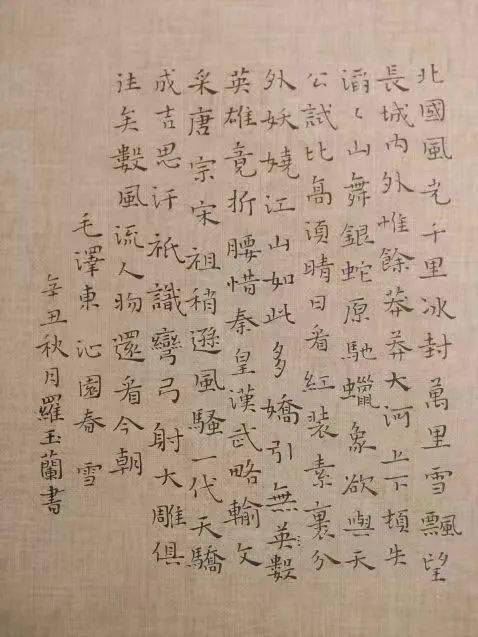 北國風光千里冰封萬里雪飄望
長城内外惟餘莽莽大河上下頓失
滔〻山舞銀蛇原馳蠟象欲與天
公試比高須晴日看紅裝素裹分
外妖嬈江山如此多嬌引無英數
英雄竟折腰惜秦皇漢武略輸文
采唐宗宋祖稍遜風騷一代天驕
成吉思汗祇識彎弓射大雕俱
往矣數風流人物還看今朝
毛澤東 沁園春 雪
辛丑秋月羅玉蘭書